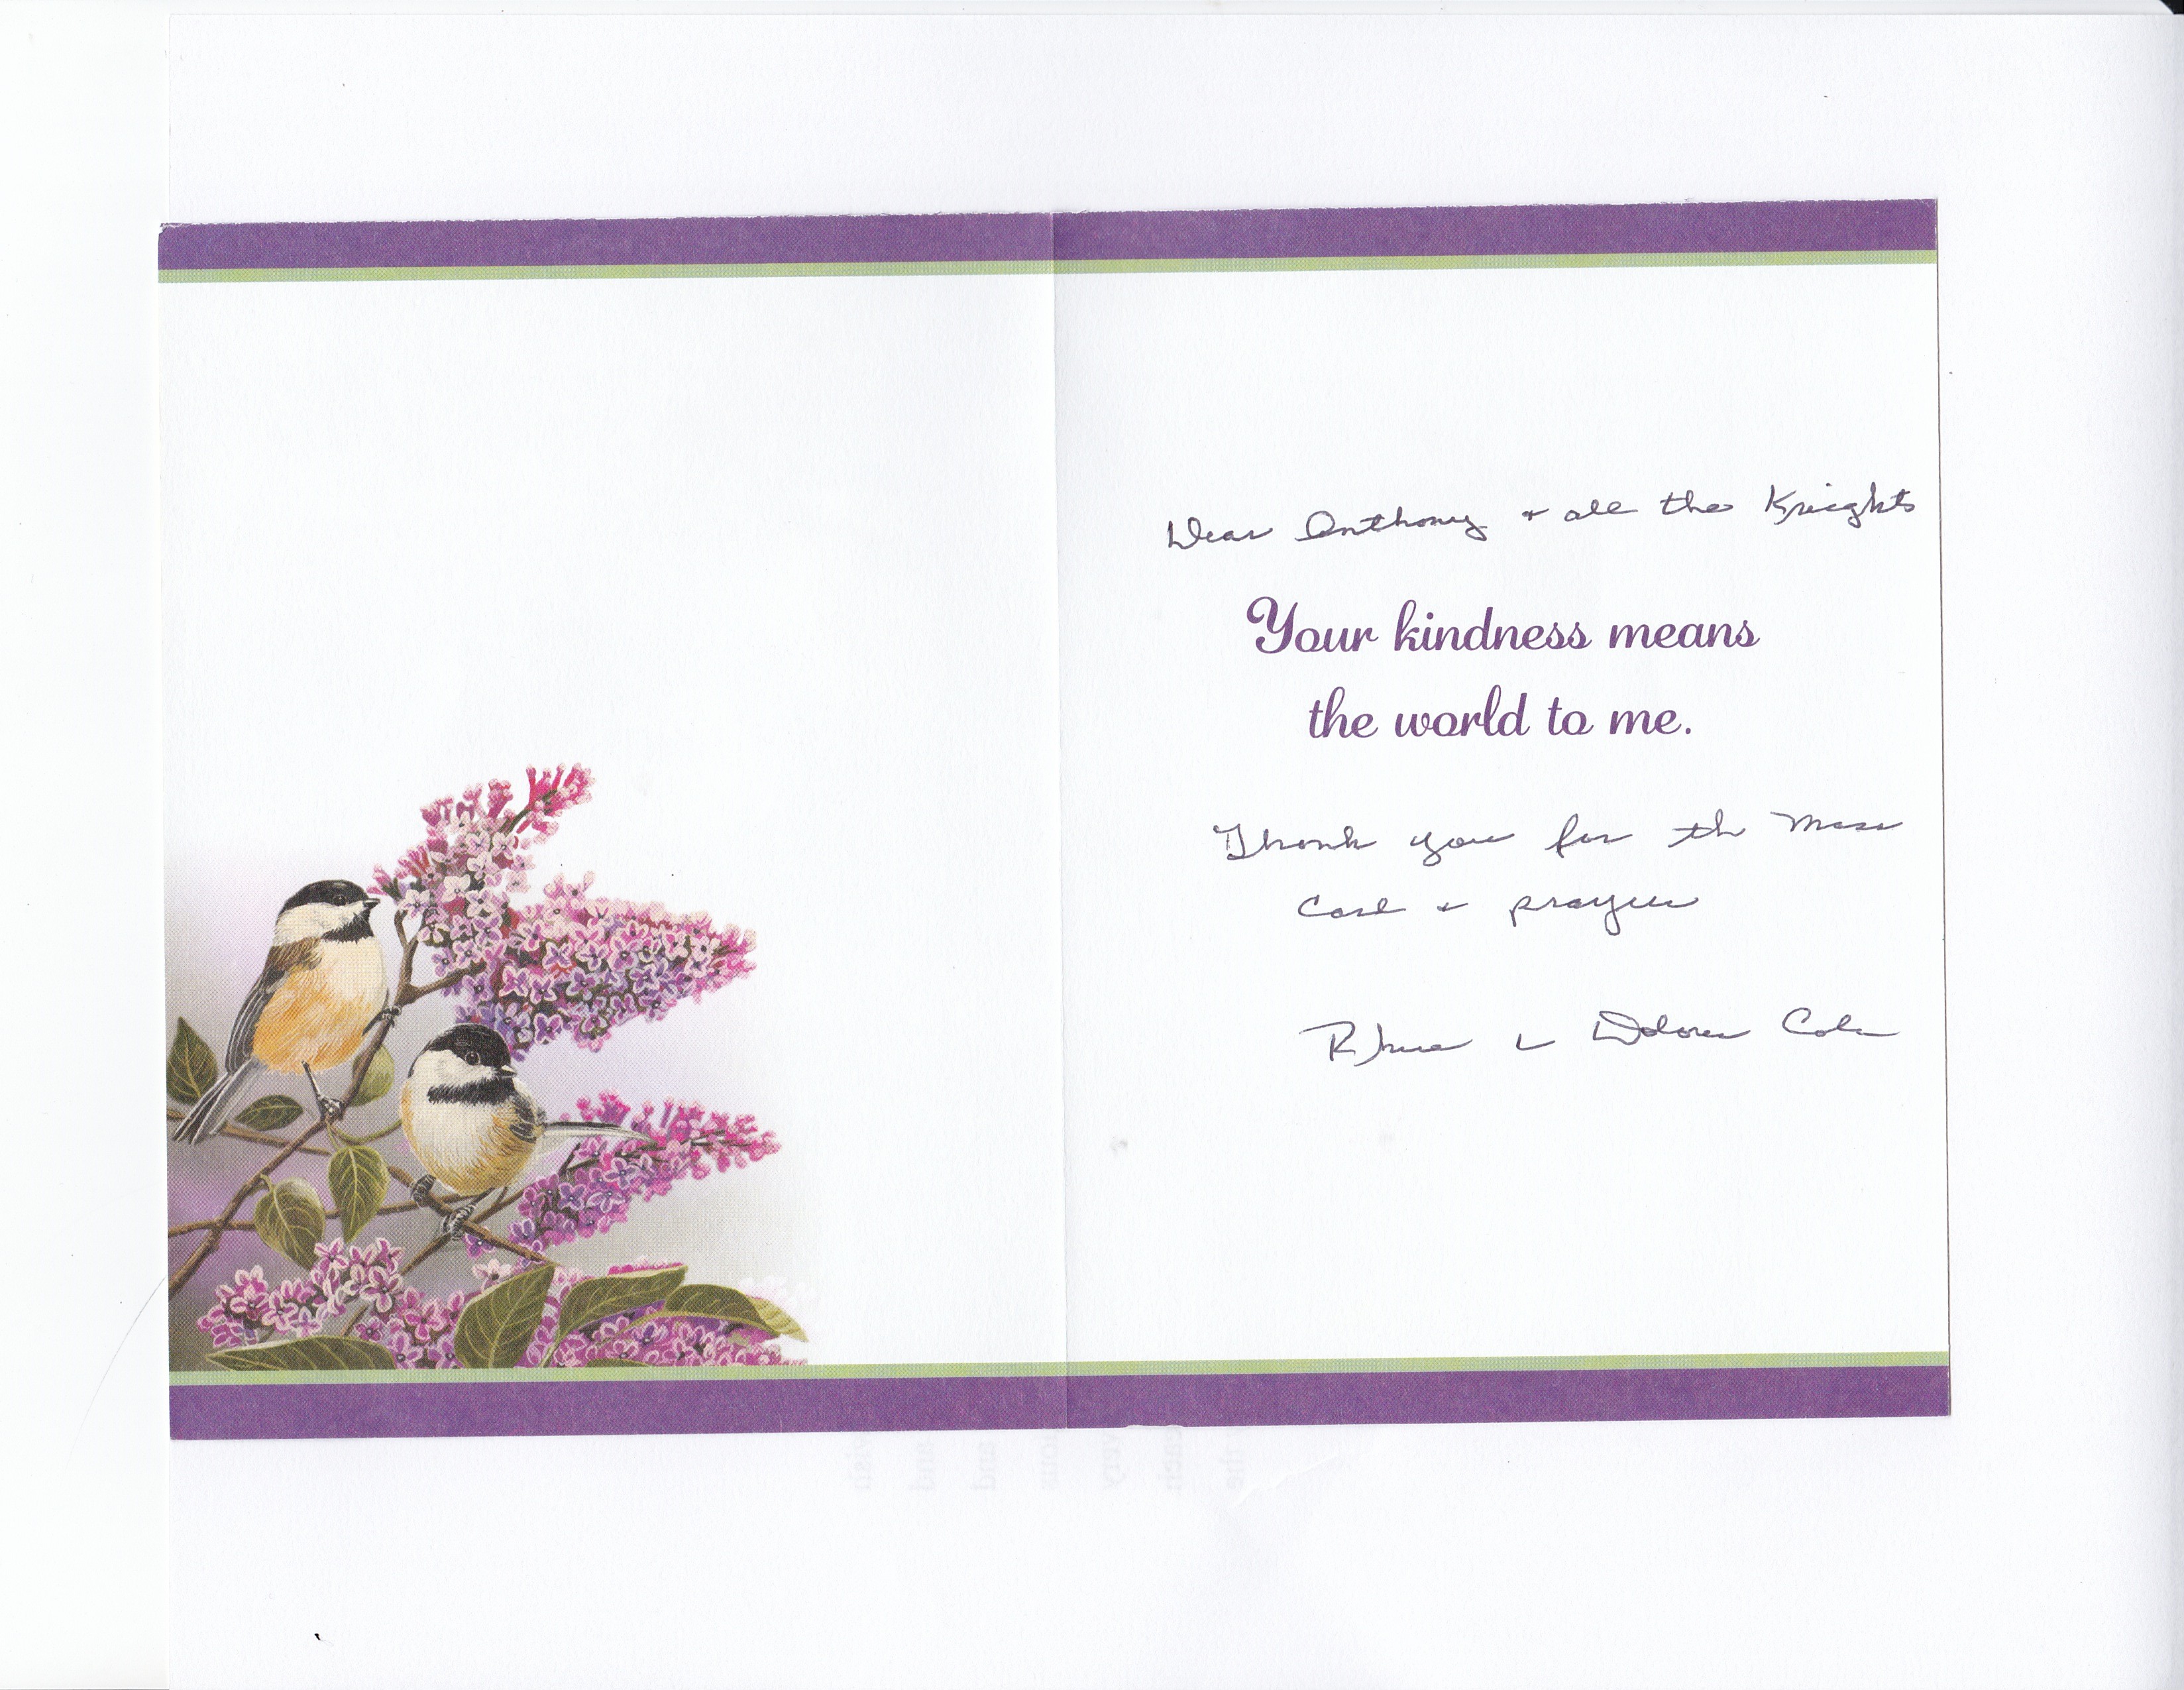 Dear Anthony + all the Knights
Your kindness means
the world to me.
Thank you for the Mass
Card + prayers
+ Dolores